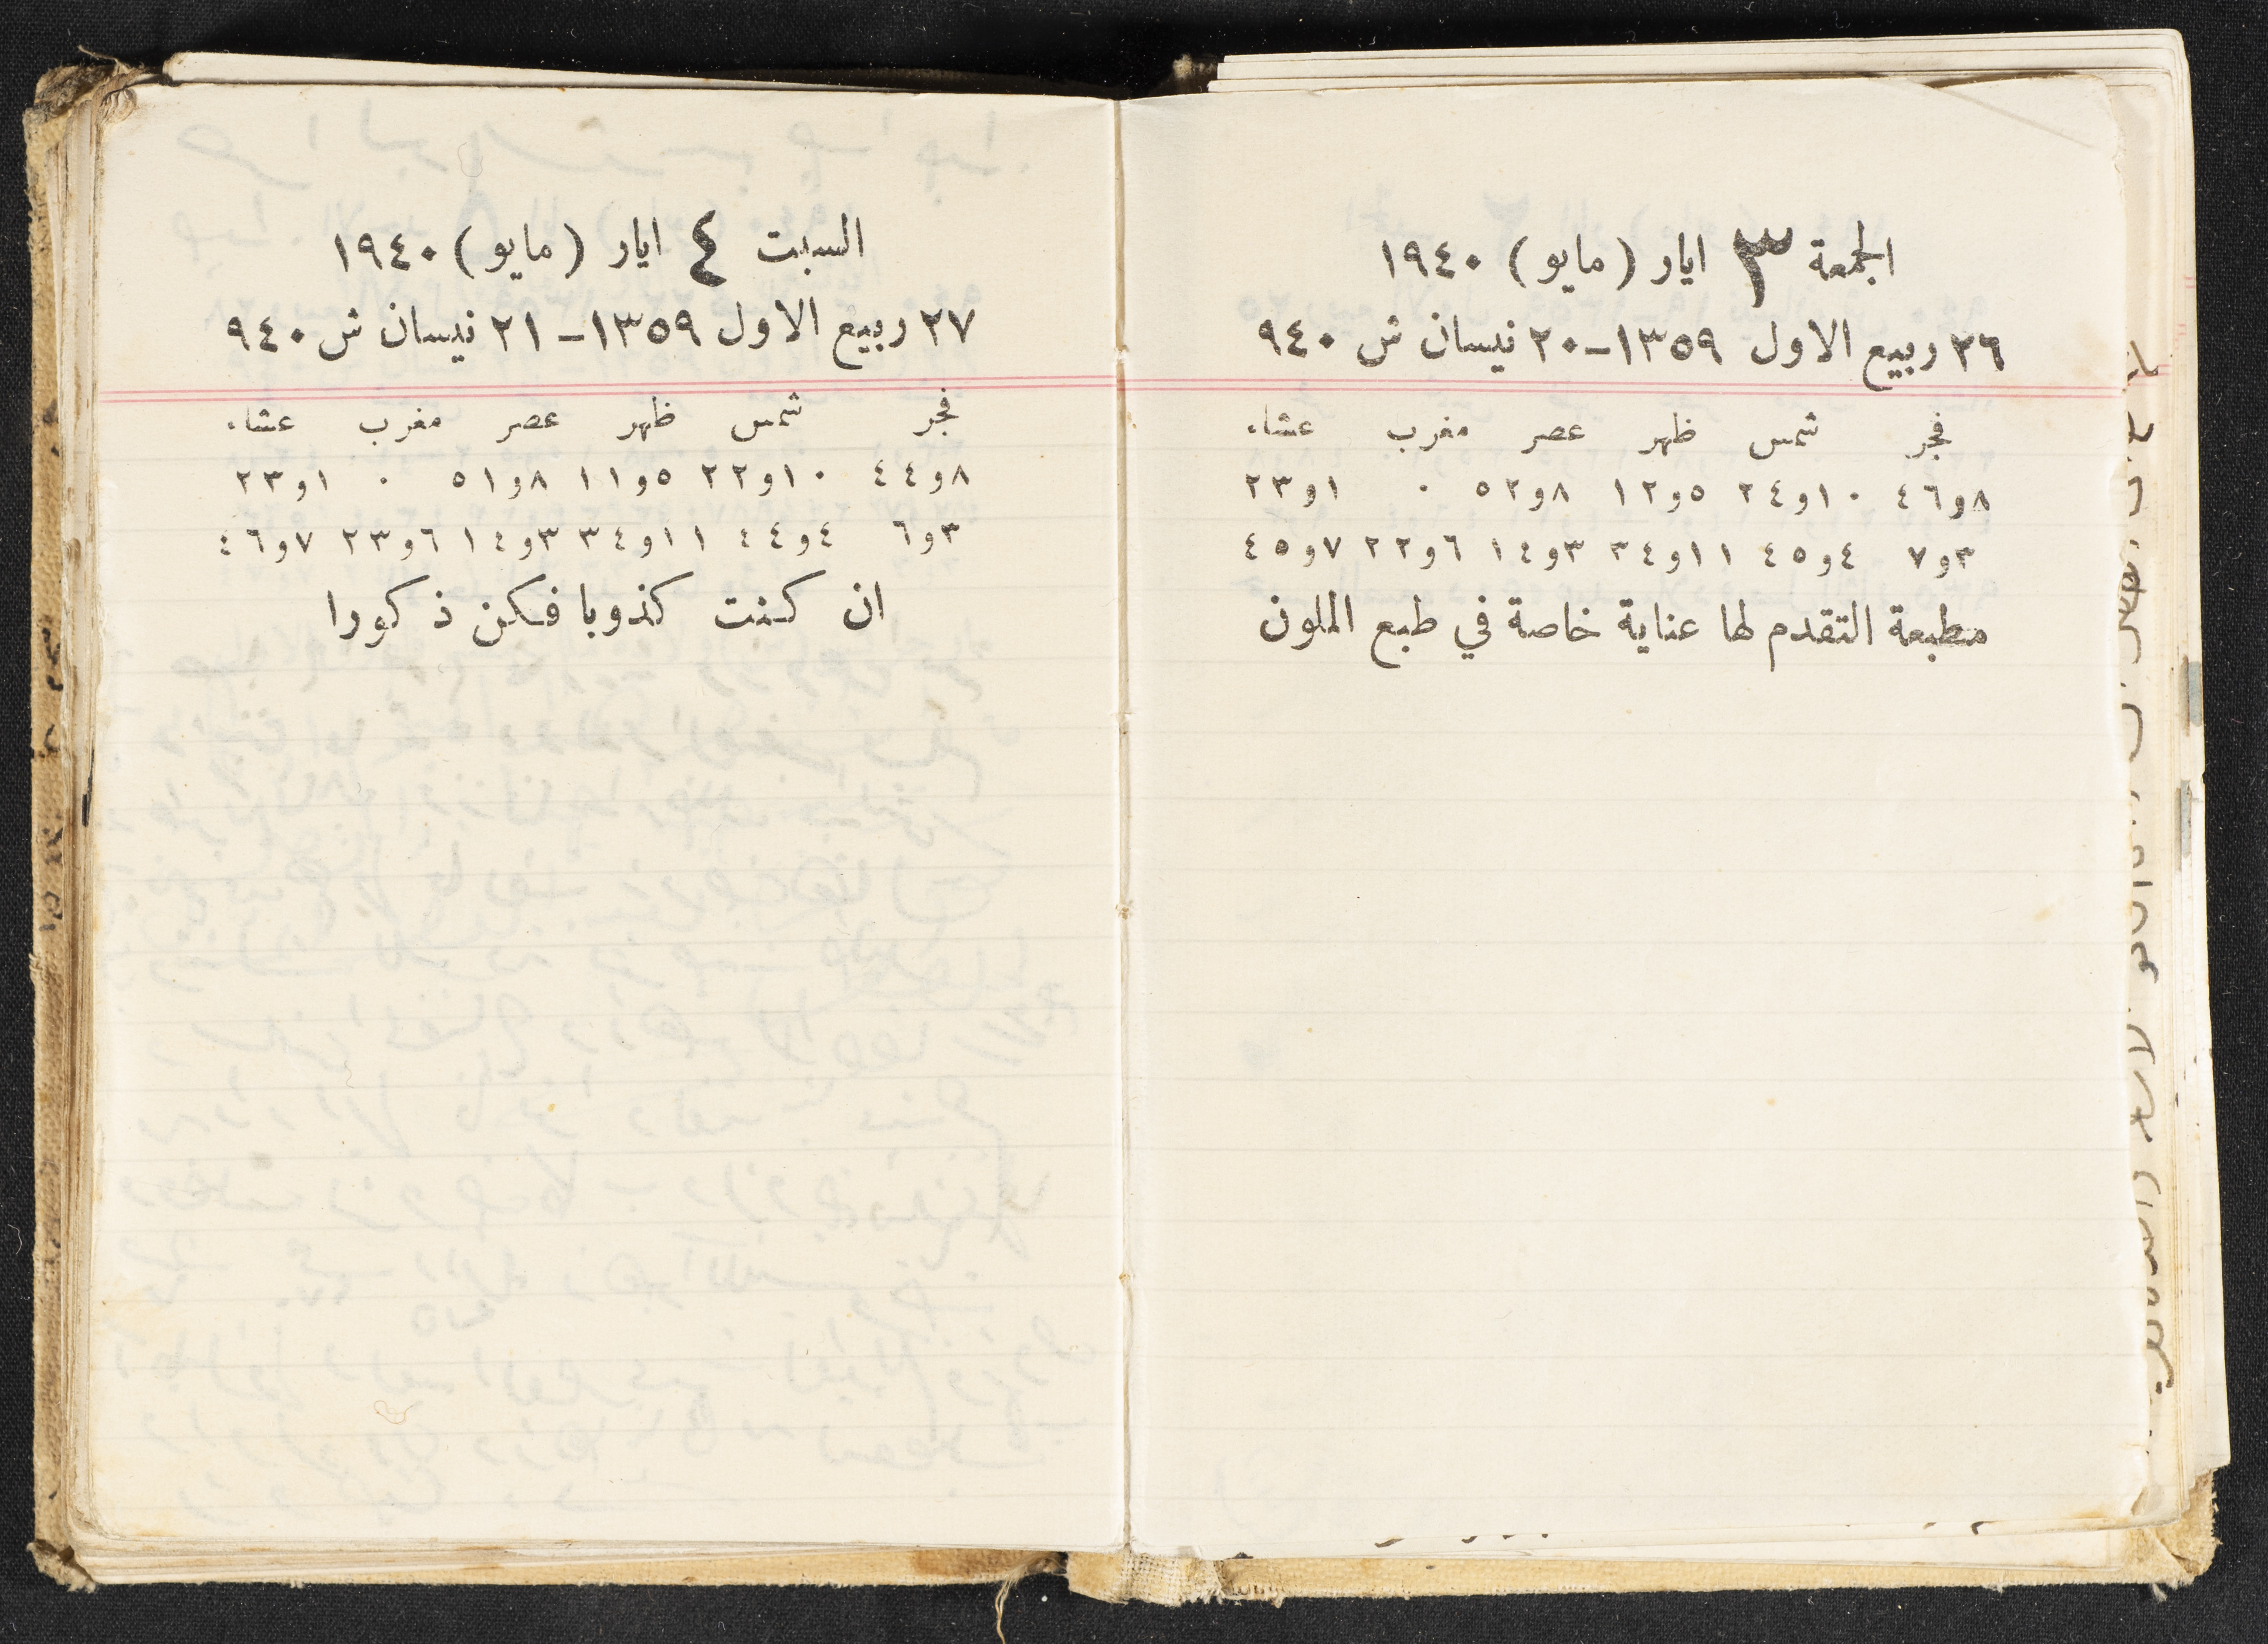 الجمعة ٣ ايار (مايو) ١٩٤٠
٢٦ ربيع الاول ١٣٥٩-٢٠ نيسان ش ٩٤٠
فجر شمس ظهر عصر مغرب عشاء
٨و٤٦ ١٠و٢٤ ٥و١٢ ٨و٥٢ ٠ ١و٢٣
٣و٧ ٤و٤٥ ١١و٣٤ ٣و١٤ ٦و٢٢ ٧و٤٥
مطبعة التقدم لها عناية خاصة في طبع الملون
السبت ٤ ايار (مايو) ١٩٤٠
٢٧ ربيع الاول ١٣٥٩-٢١ نيسان ش ٩٤٠
فجر شمس ظهر عصر مغرب عشاء
٨و٤٤ ١٠و٢٢ ٥و١١ ٨و٥١ ٠ ١و٢٣
٣و٦ ٤و٤٤ ١١و٣٤ ٣و١٤ ٦و٢٣ ٧و٤٦
ان كنت كذوبا فكن ذكورا